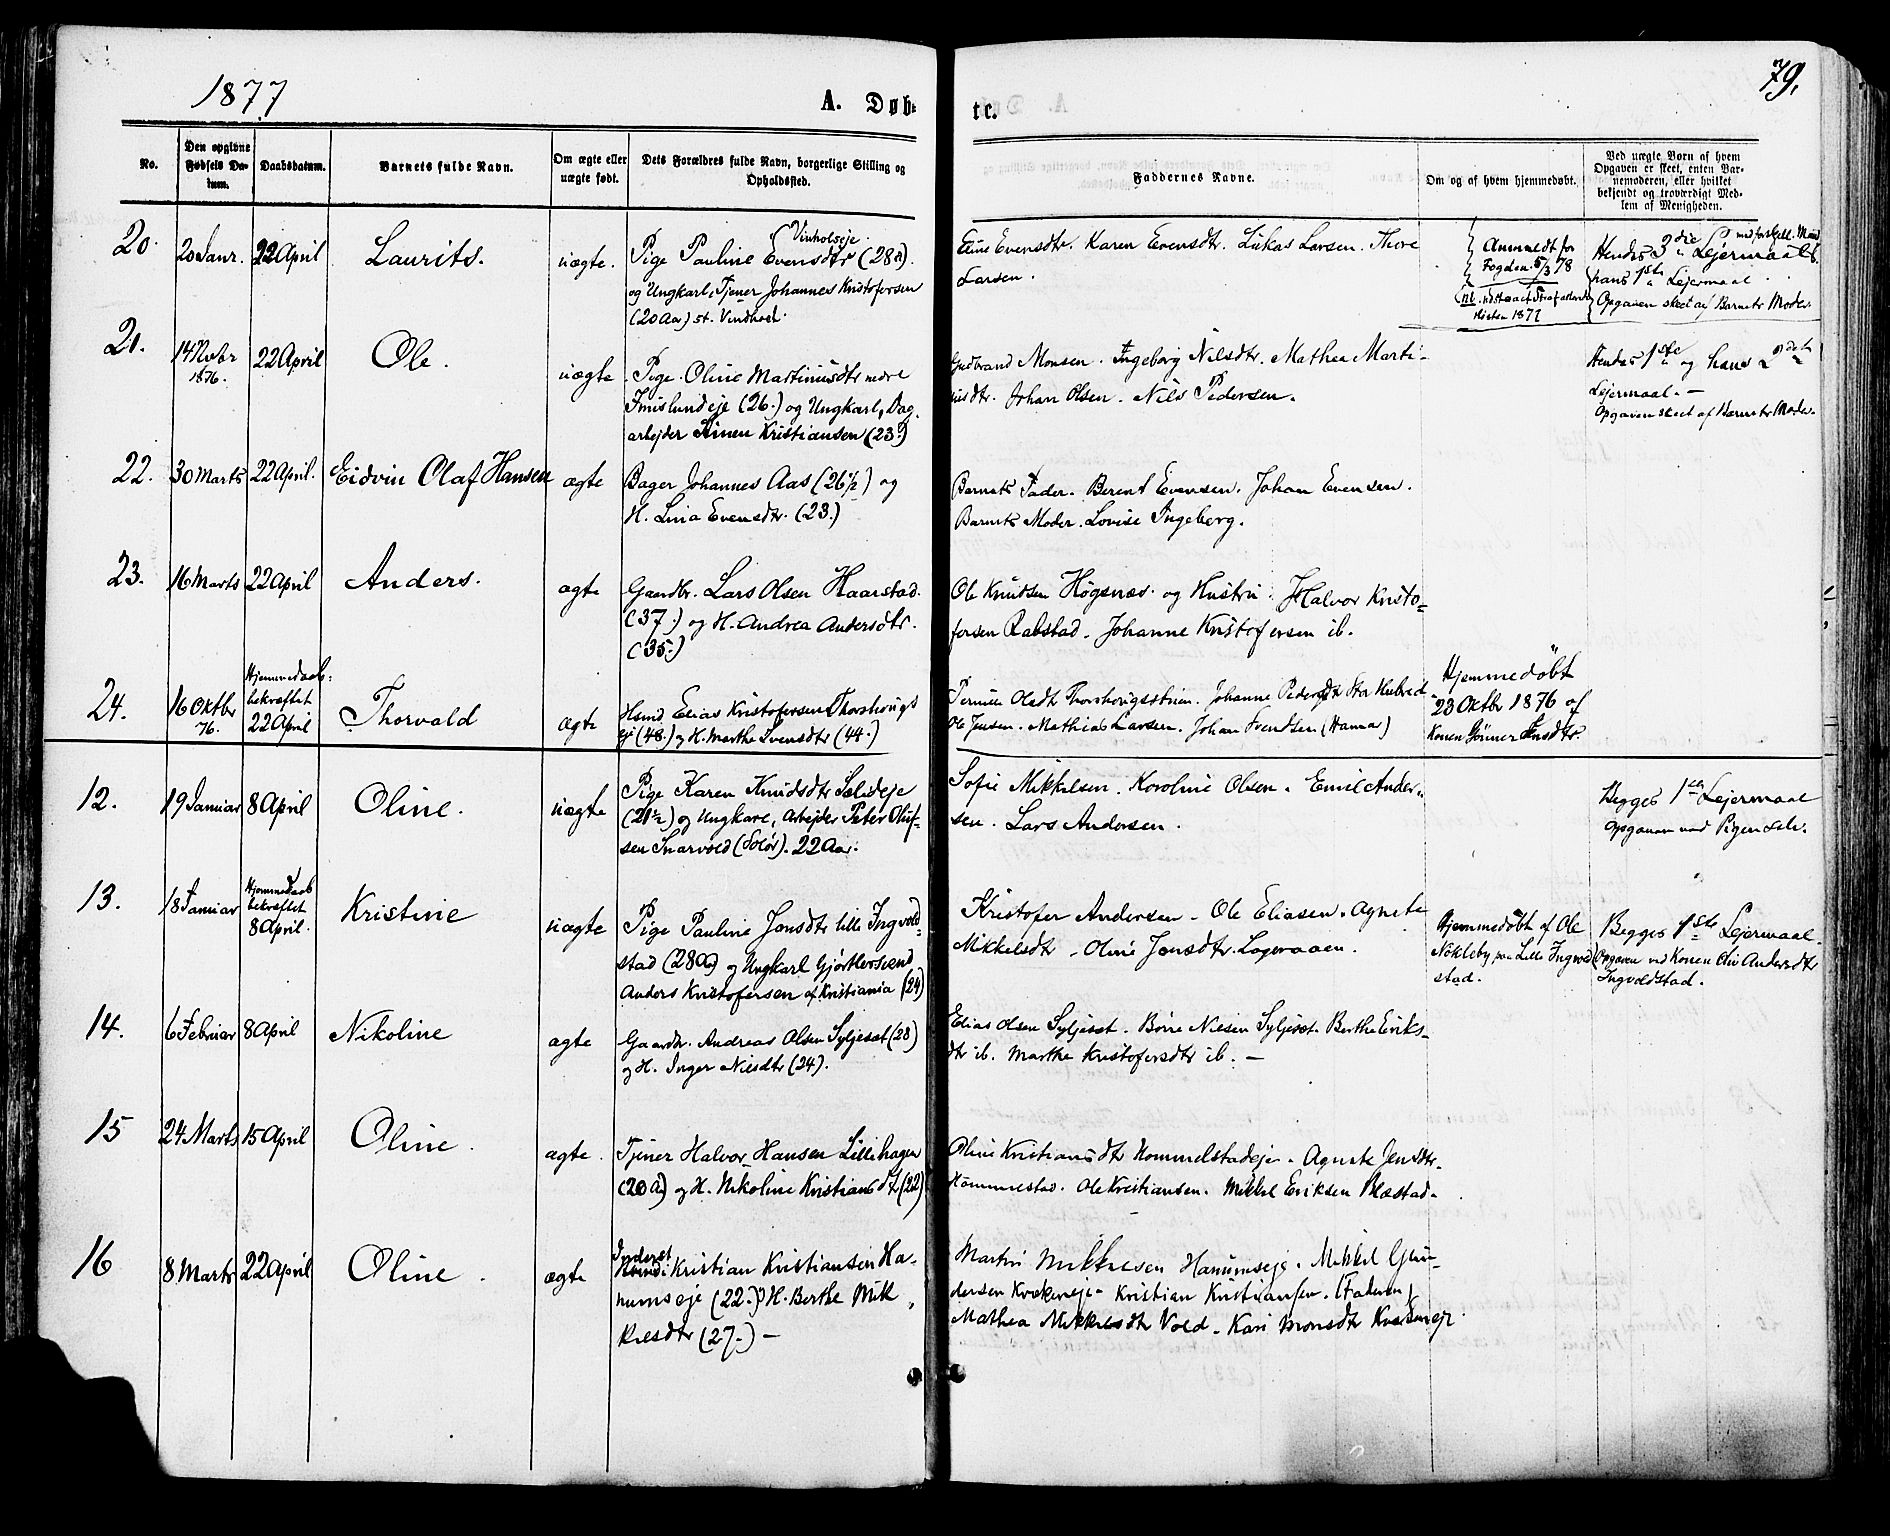 1877
A. Døb-
tc.
79.
No.
Den opgivne Fødsels Datum.
Daabsdatum.
Barnets fulde Navn.
Om ægte eller uægte født.
Dets Forældres fulde Navn, borgerlige Stilling og Opholdssted.
Faddernes Navne.
Om og af hvem hjemmedøbt.
Ved uægte Børn af hvem Opgaven er skeet, enten Barnemoderen, eller hvilket bekjendt og troværdigt Medlem af Menigheden.
20. 20 Janr. 22 April Laurits. uægte.
Vinholseje.
Pige Pauline Evensdtr (28a).
og Ungkarl, Tjener Johannes Kristofersen
(20 Aar) st. Vindhol.
Evensdtr. Karen Evensdtr. Lukas Larsen. Thore
Larsen.
Anmeldt for
Fogden 5/3 78
Høsten 1877
Hendes 3die Lejermaal
hans 1ste Lejermaal
Opgaven skeet af Barnets Moder.
21. 14 Novbr 1876. 22 April Ole. uægte
Pige Oline Martinusdtr nedre
Imislundeje (26.) og Ungkarl, Dag-
arbejder Simen Kristiansen (23.)
Gudbrand Monsen. Ingeborg Nilsdtr. Mathea Marti-
nusdtr. Johan Olsen. Nils Pedersen.
Hendes 1ste og hans 2det
Lejermaal. —
Opgaven skeet af Barnets Moder.
22. 30 Marts 22 April. Eidvin Olaf Hansen ægte
Bager Johannes Aas (26 1/2) og
H. Lina Evensdtr. (23.)
Barnets Fader. Berent Evensen. Johan Evensen.
Barnets Moder. Lovise Ingeberg.
23. 16 Marts 22 April Anders. ægte
Gaardbr. Lars Olsen Haarstad.
(37.) og H. Andrea Andersdtr.
(35.)
Ole Knudsen Høgsnæs. og Hustru. Halvor Kristo-
fersen Rabstad. Johanne Kristofersen ib.
24. 16 Oktbr 76. Hjemmedaab bekræftet 22 April Thorvald ægte
Hsmd. Elias Kristofersen Thorshougs
ej (48.) og H. Marthe Svensdtr (44.)
Pernille Olsdtr Thorshougsstuen. Johanne Pedersdtr Stor Hubred
Ole Jensen. Mathias Larsen. Johan Svendsen (Hamar)
Hjemmedøbt
23 Oktbr 1876 af
Konen Gunner Jensdtr.
12. 19 Januar 8 April Oline. uægte
Pige Karen Knudsdtr Sælideje
(21 1/2) og Ungkarl, Arbejder Peter Oluf-
sen Snarvold (Solør). 22 Aar.
Sofie Mikkelsen. Karoline Olsen. Emil Ander-
sen. Lars Andersen.
Begges 1ste Lejermaal
Opgaven ved Pigen selv.
13. 18 Januar Hjemmedaab bekræftet 8 April. Kristine uægte
Pige Pauline Jonsdtr lille Ingvold-
stad (28 Aar) og Ungkarl Gjørtlersvend
Anders Kristofersen af Kristiania (24)
Kristofer Andersen. Ole Eliasen. Agnete
Mikkelsdtr. Oline Jonsdtr.
Hjemmedøbt af Ole
Nökleby paa Lille Ingvold
stad.
Begges 1ste Lejermaal.
Opgaven ved Konen Oliv Andersdtr
Ingvoldstad.
14. 6 Februar 8 April Nikoline ægte
Gaardbr. Andreas Olsen Syljeset (28)
og H. Inger Nilsdtr (24).
Elias Olsen Syljeset. Børre Nilsen Syljeset. Berthe Eriks-
dtr ib. Marthe Kristofersdtr ib. —
15 24 Marts 15 April Oline. ægte.
Tjener Halvor Hansen Lillehagen
(20 Aar) og H. Nikoline Kristiansdtr (22)
Oline Kristiansdtr Hommelstadeje. Agnete Jensdtr.
Hommelstad. Ole Kristiansen. Mikkel Eriksen Blæstad.
16 8 Marts 22 April Oline. ægte
Inderst
Kristian Kristiansen Ha-
numseje (22.) H. Berthe Mik-
kelsdtr (27.) —
Martin Mikkelsen Hanumseje. Mikkel Gun-
dersen Kvækeneje. Kristian Kristiansen. (Faderen)
Mathea Mikkelsdtr Vold. Kari Monsdtr